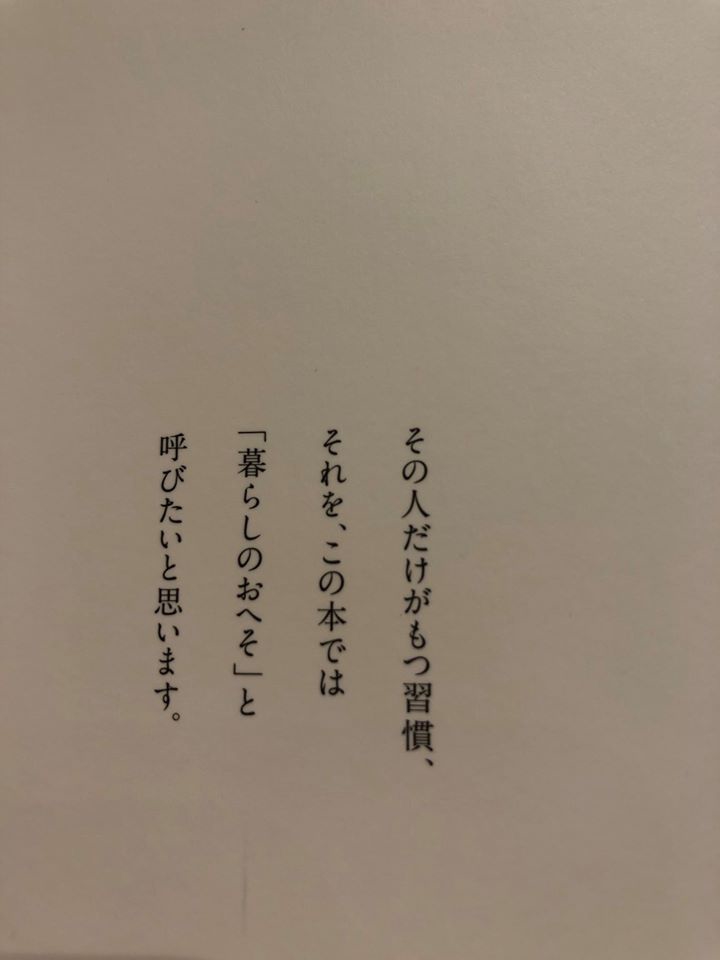 その人だけがもつ習慣、
それを、この本では
「暮らしのおへそ」と
呼びたいと思います。